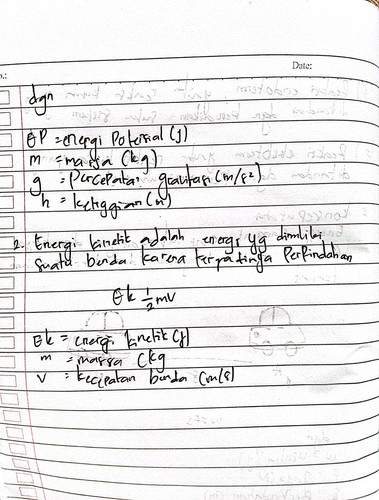 Date:
dgn
EP = energi Potensial (J)
m = massa (kg)
g = Percepatan gravitasi (m/s²)
h = ketinggian (m)
2. Energi kinetik adalah energi yg dimiliki
suatu benda karena terjadinya Perpindahan
Ek ½ mv
Ek = energi kinetik (J)
m = massa (kg
v = kecepatan benda (m/s)